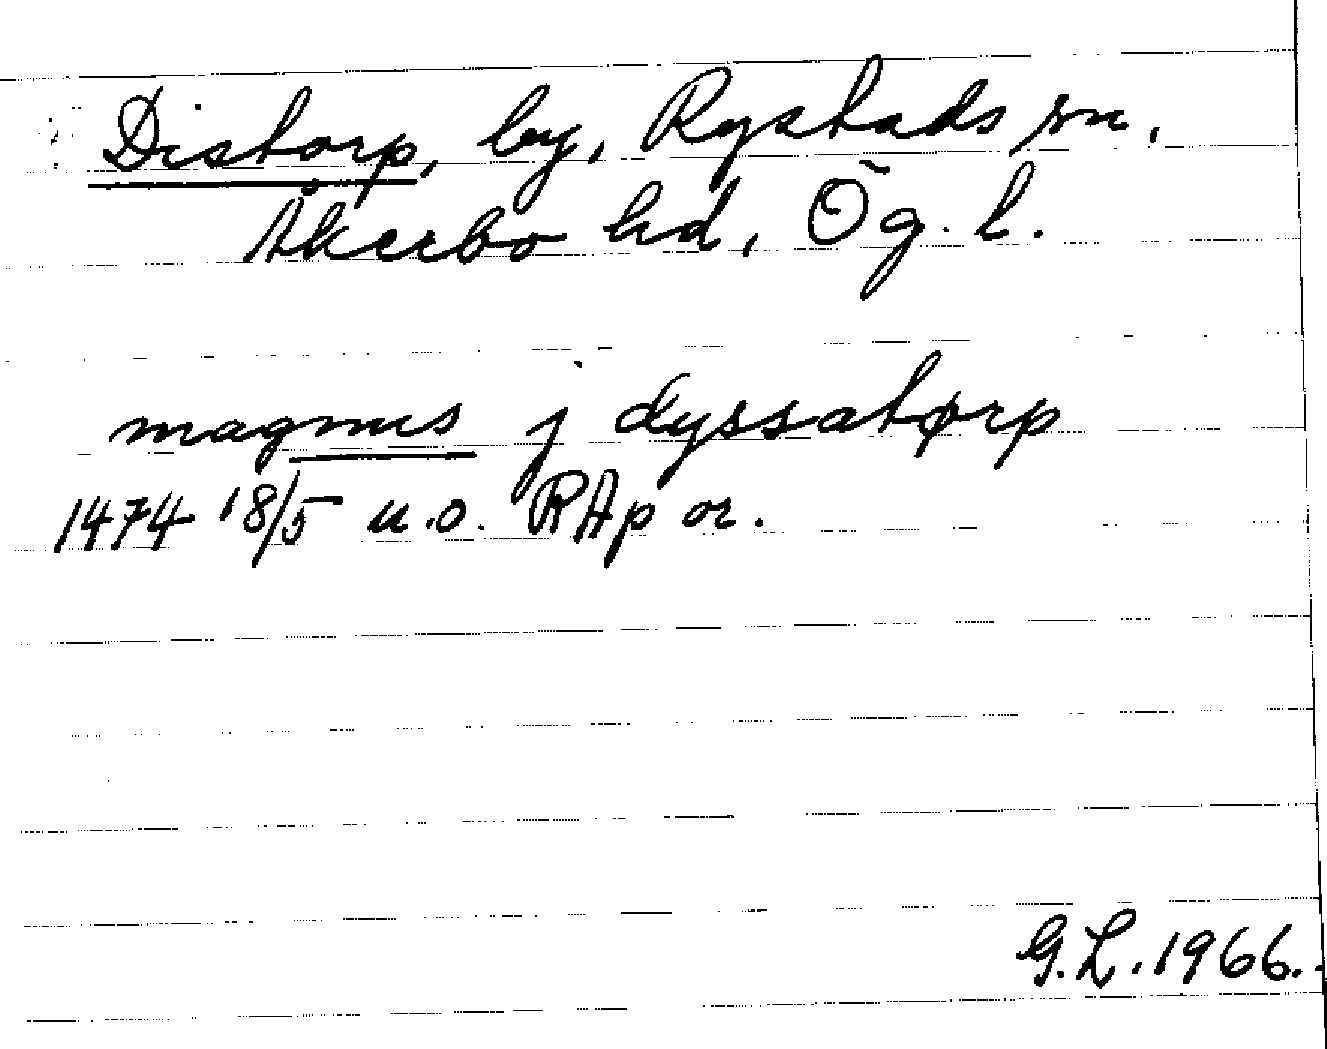 Distorp, by, Rystads sn.
Åkerbo hd, Ög. l.
magnus j dyssatørp
1474 18/5 u.o. RAp or.
G.L. 1966.